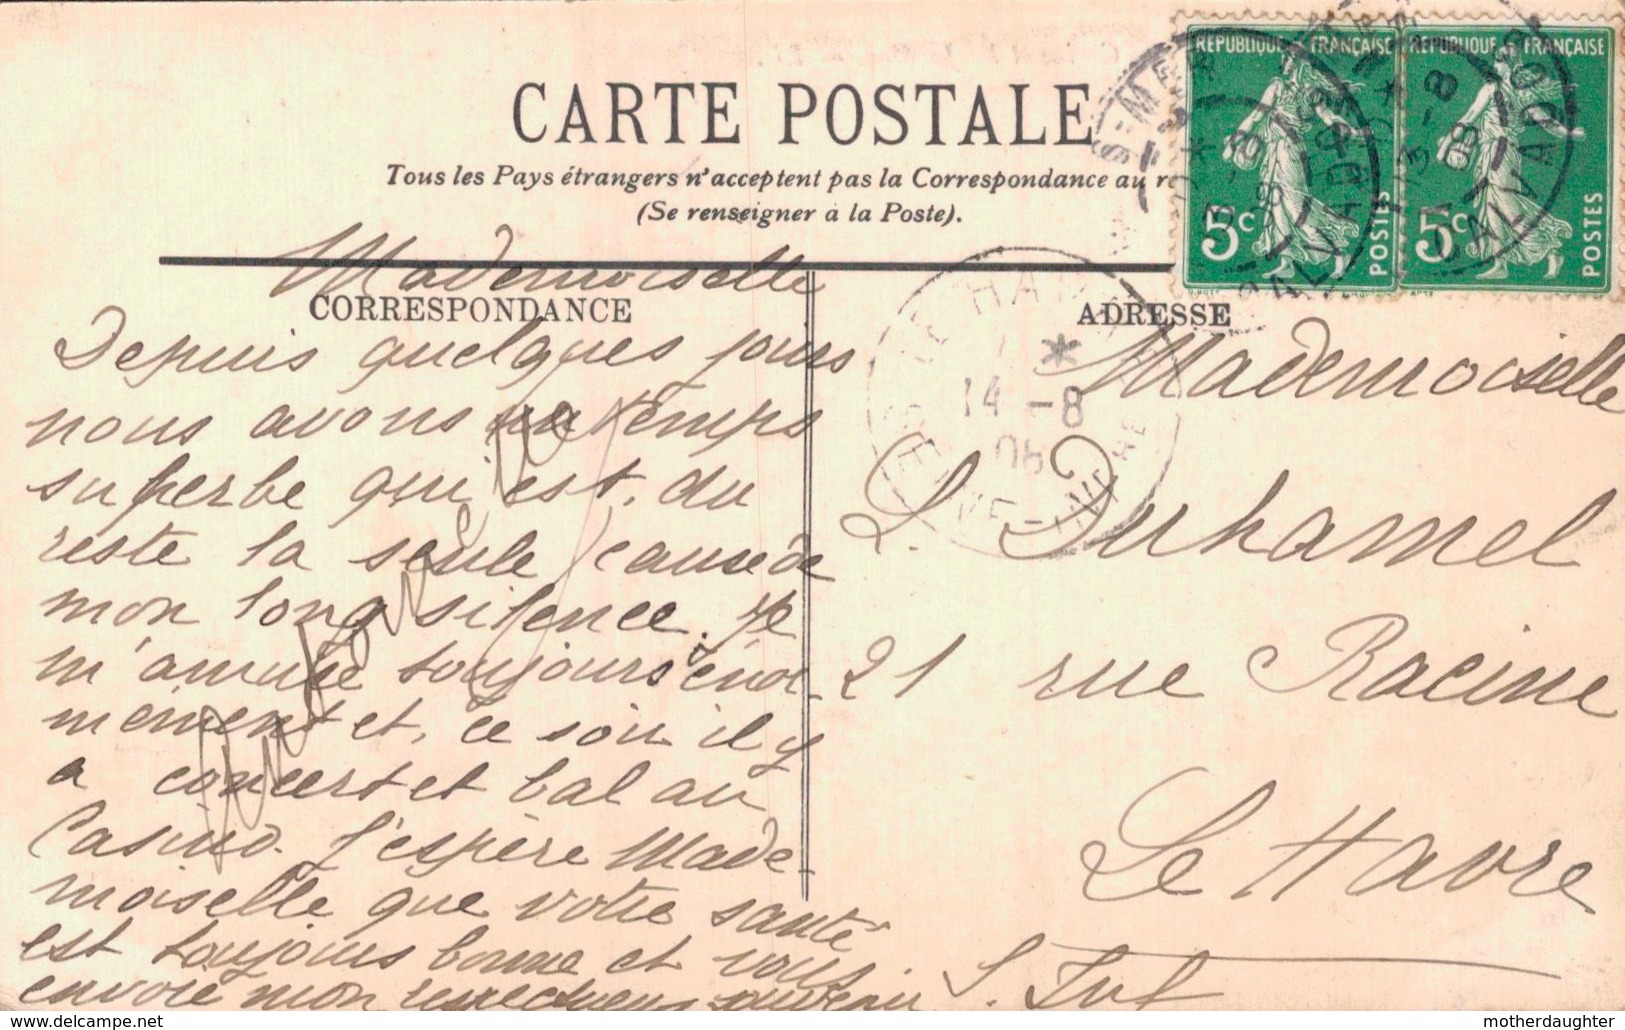 CARTE POSTALE
Tous les Pays étrangers n'acceptent pas la Correspondance au
(Se renseigner à la Poste).
REPUBLIQUE FRANÇAISE
5c
POSTES
REPUBLIQUE FRANÇAISE
5c
POSTES
13 -8
08
CALVADOS
LE HAVRE
14 -8
08
CORRESPONDANCE
ADRESSE
Mademoiselle
Depuis quelques jours
nous avons un temps
superbe qui est, du
reste la seule cause de
mon long silence. Je
m'amuse toujours énor-
mément et, ce soir il y
a concert et bal au
Casino. J'espère Made-
moiselle que votre santé
est toujours bonne et vous
envoie mon respectueux souvenir
Mademoiselle
L. Duhamel
21 rue Racine
Le Havre
delcampe.net
motherdaughter